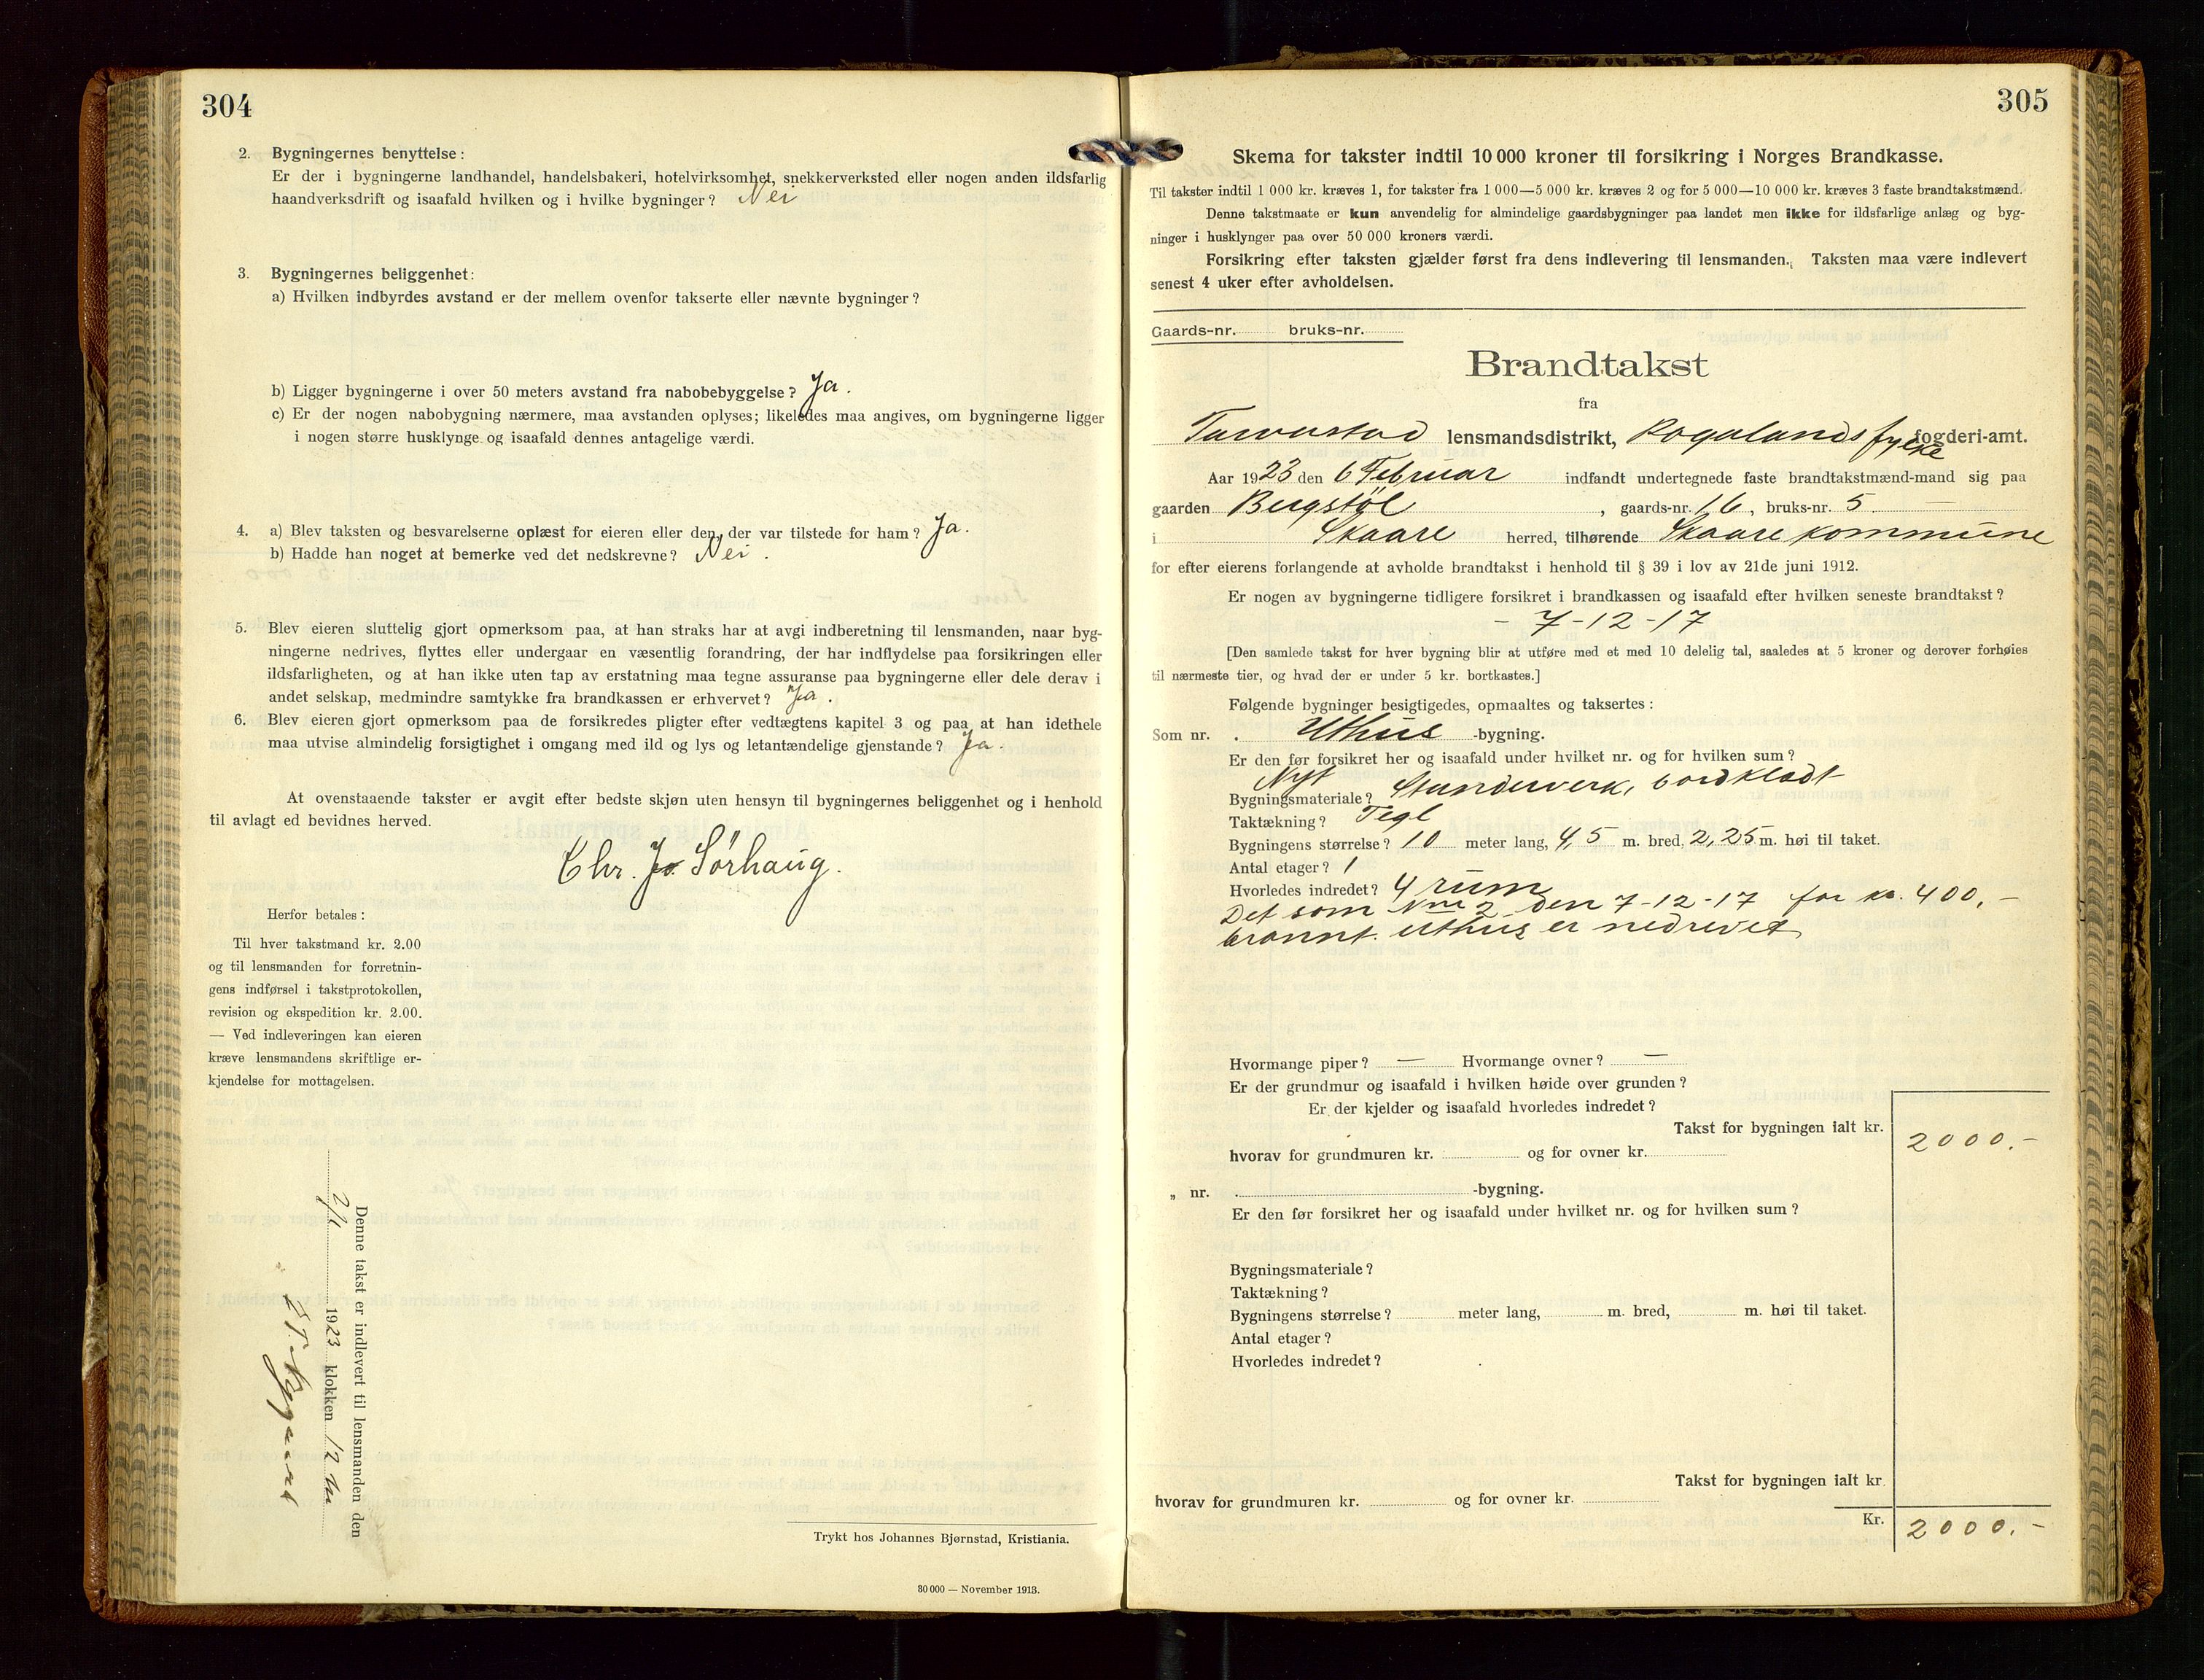 304
2. Bygningernes benyttelse:
Er der i bygningerne landhandel, handelsbakeri, hotelvirksomhet, snekkerverksted eller nogen anden ildsfarlig
haandverksdrift og isaafald hvilken og i hvilke bygninger? Nei
3. Bygningernes beliggenhet:
a) Hvilken indbyrdes avstand er der mellem ovenfor takserte eller nævnte bygninger?
b) Ligger bygningerne i over 50 meters avstand fra nabobebyggelse? Ja.
c) Er der nogen nabobygning nærmere, maa avstanden oplyses; likeledes maa angives, om bygningerne ligger
i nogen større husklynge og isaafald dennes antagelige værdi.
4. a) Blev taksten og besvarelserne oplæst for eieren eller den, der var tilstede for ham? Ja.
b) Hadde han noget at bemerke ved det nedskrevne? Nei.
5. Blev eieren sluttelig gjort opmerksom paa, at han straks har at avgi indberetning til lensmanden, naar byg-
ningerne nedrives, flyttes eller undergaar en væsentlig forandring, der har indflydelse paa forsikringen eller
ildsfarligheten, og at han ikke uten tap av erstatning maa tegne assuranse paa bygningerne eller dele derav i
andet selskap, medmindre samtykke fra brandkassen er erhvervet? Ja.
6. Blev eieren gjort opmerksom paa de forsikredes pligter efter vedtægtens kapitel 3 og paa at han idethele
maa utvise almindelig forsigtighet i omgang med ild og lys og letantændelige gjenstande? Ja.
At ovenstaaende takster er avgit efter bedste skjøn uten hensyn til bygningernes beliggenhet og i henhold
til avlagt ed bevidnes herved.
Chr. Jo. Sörhaug.
Herfor betales:
Til hver takstmand kr. 2.00
og til lensmanden for forretnin-
gens indførsel i takstprotokollen,
revision og ekspedition kr. 2.00.
— Ved indleveringen kan eieren
kræve lensmandens skriftlige er-
kjendelse for mottagelsen.
Denne takst er indlevert til lensmanden den
1923 klokken 12
Trykt hos Johannes Bjørnstad, Kristiania.
30 000 — November 1913.
305
Skema for takster indtil 10 000 kroner til forsikring i Norges Brandkasse.
Til takster indtil 1 000 kr. kræves 1, for takster fra 1 000—5 000 kr. kræves 2 og for 5 000—10 000 kr. kræves 3 faste brandtakstmænd.
Denne takstmaate er kun anvendelig for almindelige gaardsbygninger paa landet men ikke for ildsfarlige anlæg og byg-
ninger i husklynger paa over 50 000 kroners værdi.
Forsikring efter taksten gjælder først fra dens indlevering til lensmanden. Taksten maa være indlevert
senest 4 uker efter avholdelsen.
Gaards-nr. bruks-nr.
Brandtakst
fra
Torvastad lensmandsdistrikt, Rogalands fylke fogderi-amt.
Aar 1923 den 6 Februar indfandt undertegnede faste brandtakstmænd-mand sig paa
gaarden Bergstöl, gaards-nr. 16, bruks-nr. 5
i Skaare herred, tilhørende Skaare kommune
for efter eierens forlangende at avholde brandtakst i henhold til § 39 i lov av 21de juni 1912.
Er nogen av bygningerne tidligere forsikret i brandkassen og isaafald efter hvilken seneste brandtakst?
- 7-12-17
[Den samlede takst for hver bygning blir at utføre med et med 10 delelig tal, saaledes at 5 kroner og derover forhøies
til nærmeste tier, og hvad der er under 5 kr. bortkastes.]
Følgende bygninger besigtigedes, opmaaltes og taksertes:
Som nr. . Uthus -bygning.
Er den før forsikret her og isaafald under hvilket nr. og for hvilken sum?
Nyt
Bygningsmateriale? Stenderverk, bordklædt
Taktækning? Tegl
Bygningens størrelse? 10 meter lang, 4,5 m. bred, 2,25 m. høi til taket.
Antal etager? 1
Hvorledes indredet? 4 rum
Det som Nm 2 den 7-12-17 for kr. 400,-
brannt. uthus er nedrevet
Hvormange piper? — Hvormange ovner? —
Er der grundmur og isaafald i hvilken høide over grunden?
Er der kjelder og isaafald hvorledes indredet?
Takst for bygningen ialt kr. 2000.-
hvorav for grundmuren kr. og for ovner kr.
„ nr. . -bygning.
Er den før forsikret her og isaafald under hvilket nr. og for hvilken sum?
Bygningsmateriale?
Taktækning?
Bygningens størrelse? meter lang, m. bred, m. høi til taket.
Antal etager?
Hvorledes indredet?
Takst for bygningen ialt kr.
hvorav for grundmuren kr. og for ovner kr.
Kr. 2000.-